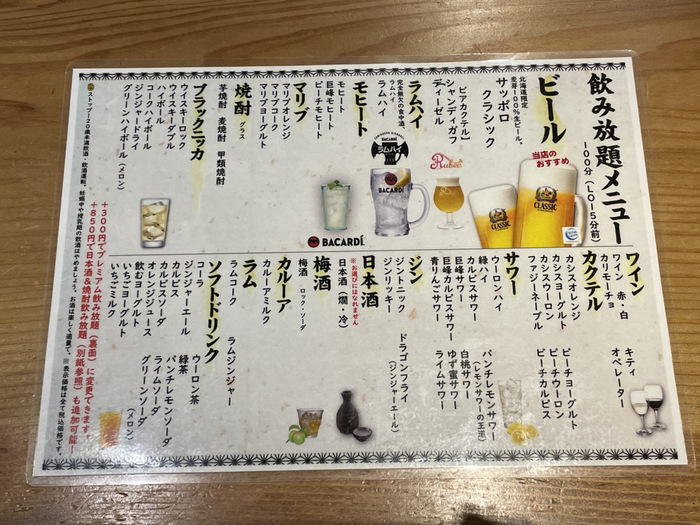 飲み放題メニュー
100分(LO15分前)
ビール
北海道限定
麦芽100%生ビール。
サッポロ
クラシック
ビアカクテル】
シャンディガフ
ディーゼル
ラムハイ
完全無欠の食中酒。
ラムハイ
ラムハイ
モヒート
モヒート
巨峰モヒート
ピーチモヒート
マリブ
マリブオレンジ
マリブコーク
マリブヨーグルト
焼酎 グラス
芋焼酎 麦焼酎 甲類焼酎
ブラックニッカ
ウイスキーロック
ウイスキーダブル
ハイボール
コークハイボール
ジンジャードライ
グリーンハイボール(メロン)
当店の
おすすめ
CLASSIC
CLASSIC
Rubee
BACARDÍ
ラムハイ
BACARDÍ
BACARDÍ.
ワイン
ワイン 赤・白
カリモーチョ
キティ
オペレーター
カクテル
カシスオレンジ
カシスヨーグルト
カシスウーロン
ファジーネーブル
ピーチヨーグルト
ピーチウーロン
ピーチカルピス
サワー
ウーロンハイ
緑ハイ
カルピスサワー
巨峰サワー
巨峰カルピスサワー
青りんサワー
パンチレモンサワー
(レモンサワーの王道)
白桃サワー
ゆず蜜サワー
ライムサワー
ジン
ジントニック
ジンリッキー
ドラゴンフライ
(ジンジャーエール)
日本酒
※お選びにはなれません
日本酒(燗・冷)
梅酒
梅酒 ロック・ソーダ
カルーア
カルーアミルク
ラム
ラムコーク
ラムジンジャー
ソフトドリンク
コーラ
ジンジャーエール
カルピス
カルピスソーダ
オレンジジュース
飲むヨーグルト
いちごヨーグルト
いちごミルク
ウーロン茶
緑茶
パンチレモンソーダ
ライムソーダ
グリーンソーダ
(メロン)
+300円でプレミアム飲み放題(裏面)に変更できます。
+850円で日本酒&焼酎飲み放題(別紙参照)も追加可能!
ストップ!20歳未満飲酒・飲酒運転。妊娠中や授乳期の飲酒はやめましょう。お酒は楽しく適量で。※表示価格は全て税込価格です。